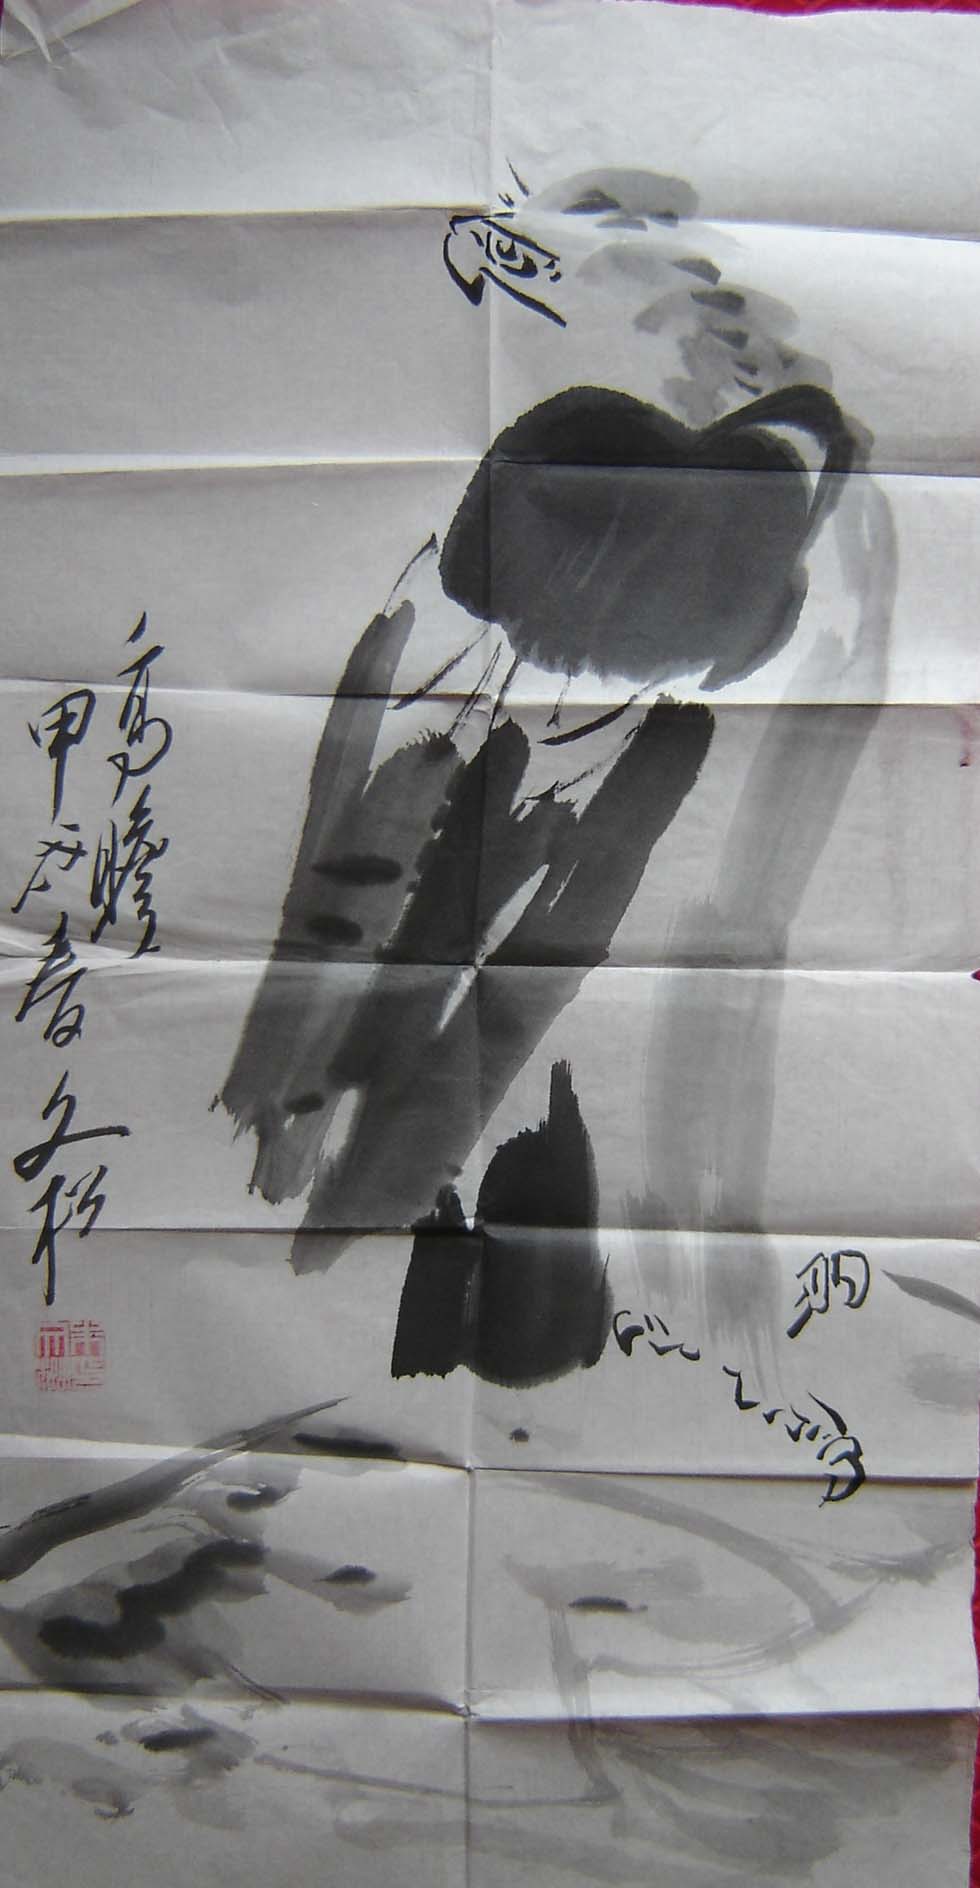 高瞻
甲戌春文松